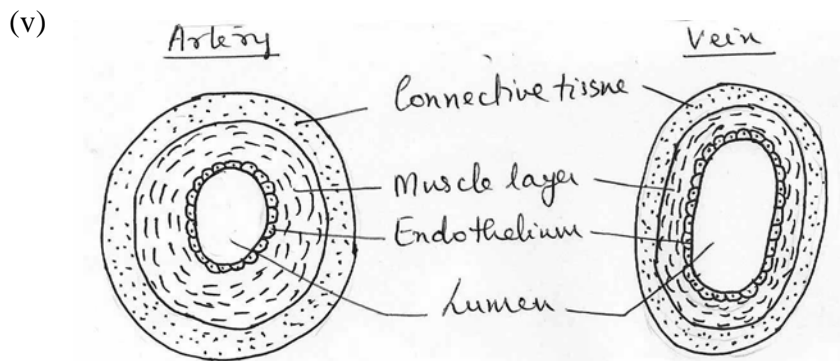 (v)
Artery Vein
Connective tissue
Muscle layer
Endothelium
Lumen